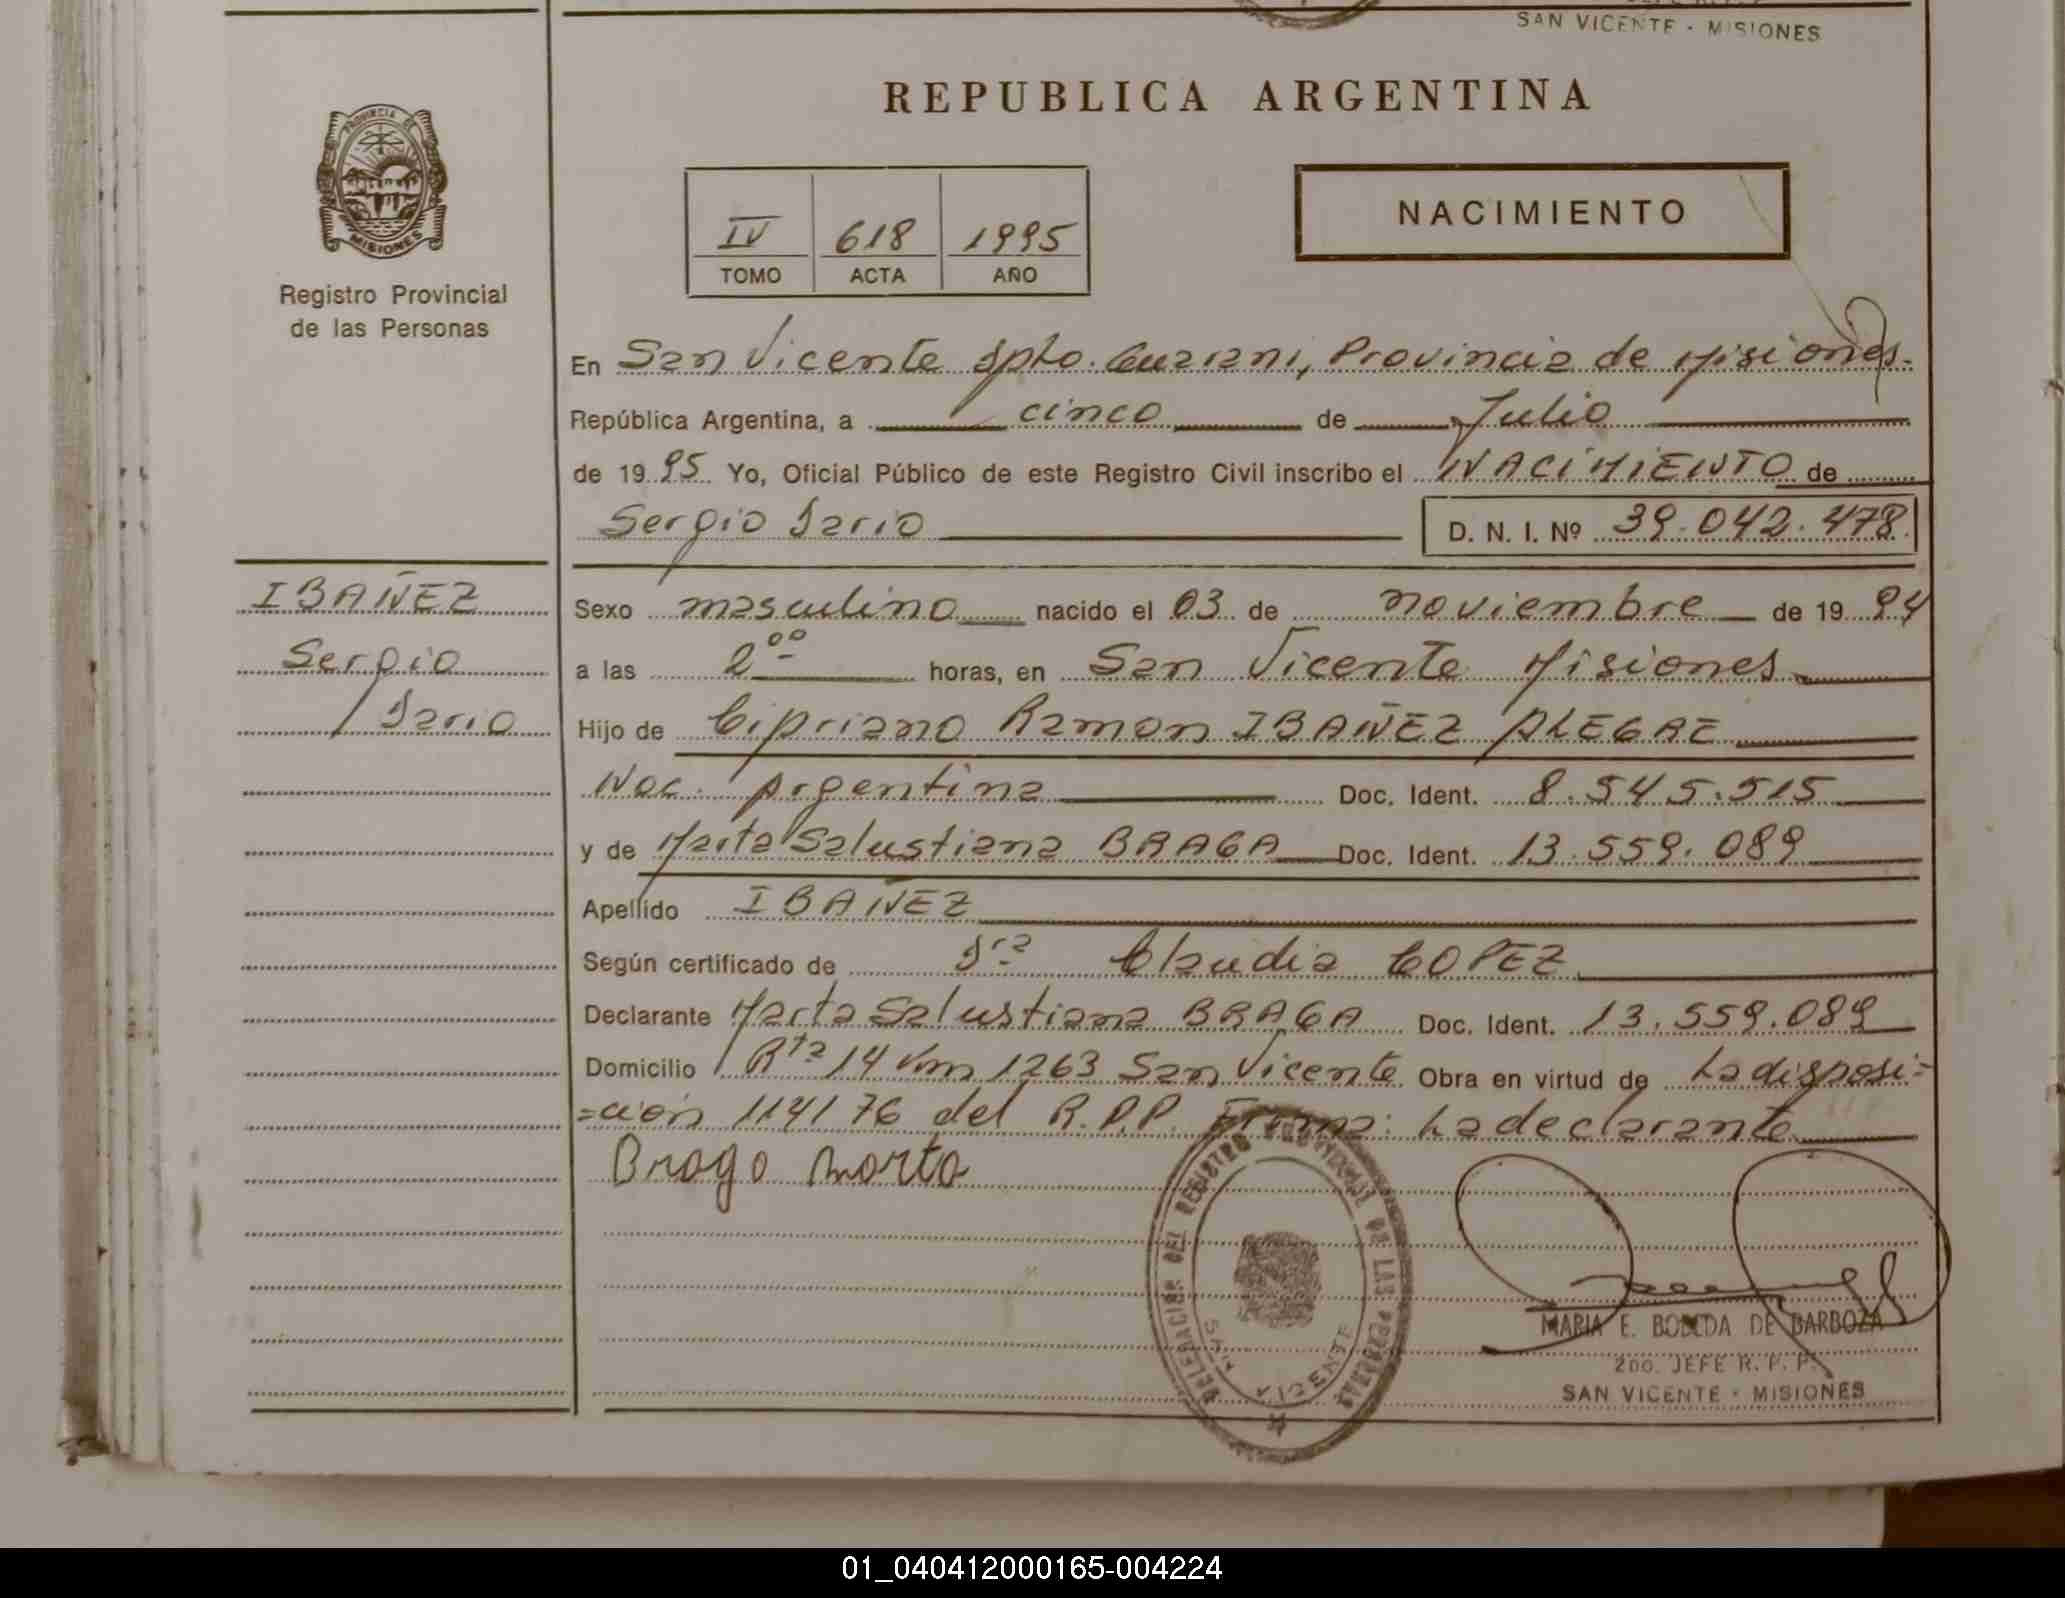 SAN VICENTE - MISIONES
REPUBLICA ARGENTINA
PROVINCIA DE
MISIONES
Registro Provincial
de las Personas
IV 618 1995
TOMO ACTA AÑO
NACIMIENTO
En San Vicente Dpto. Guarani, Provincia de Misiones.
República Argentina, a cinco de Julio
de 1995 Yo, Oficial Público de este Registro Civil inscribo el NACIMIENTO de
Sergio Dario D. N. I. Nº 39.042.478
IBAÑEZ
Sergio
Dario
Sexo masculino nacido el 03 de noviembre de 1994
a las 2⁰⁰ horas, en San Vicente Misiones
Hijo de Cipriano Ramon IBAÑEZ ALEGRE
Nac. Argentina Doc. Ident. 8.545.515
y de Marta Salustiana BRAGA Doc. Ident. 13.559.089
Apellido IBAÑEZ
Según certificado de Dra Claudia LOPEZ
Declarante Marta Salustiana BRAGA Doc. Ident. 13.559.089
Domicilio Rta 14 Km 1263 San Vicente Obra en virtud de La disposi=
=ción 114/76 del R.P.P. Firma: La declarante
Braga Marta
DELEGACION DEL REGISTRO PROVINCIAL DE LAS PERSONAS
SAN VICENTE
MARIA E. DE BARBOZA
2DO. JEFE R. P. P.
SAN VICENTE - MISIONES
01_040412000165-004224